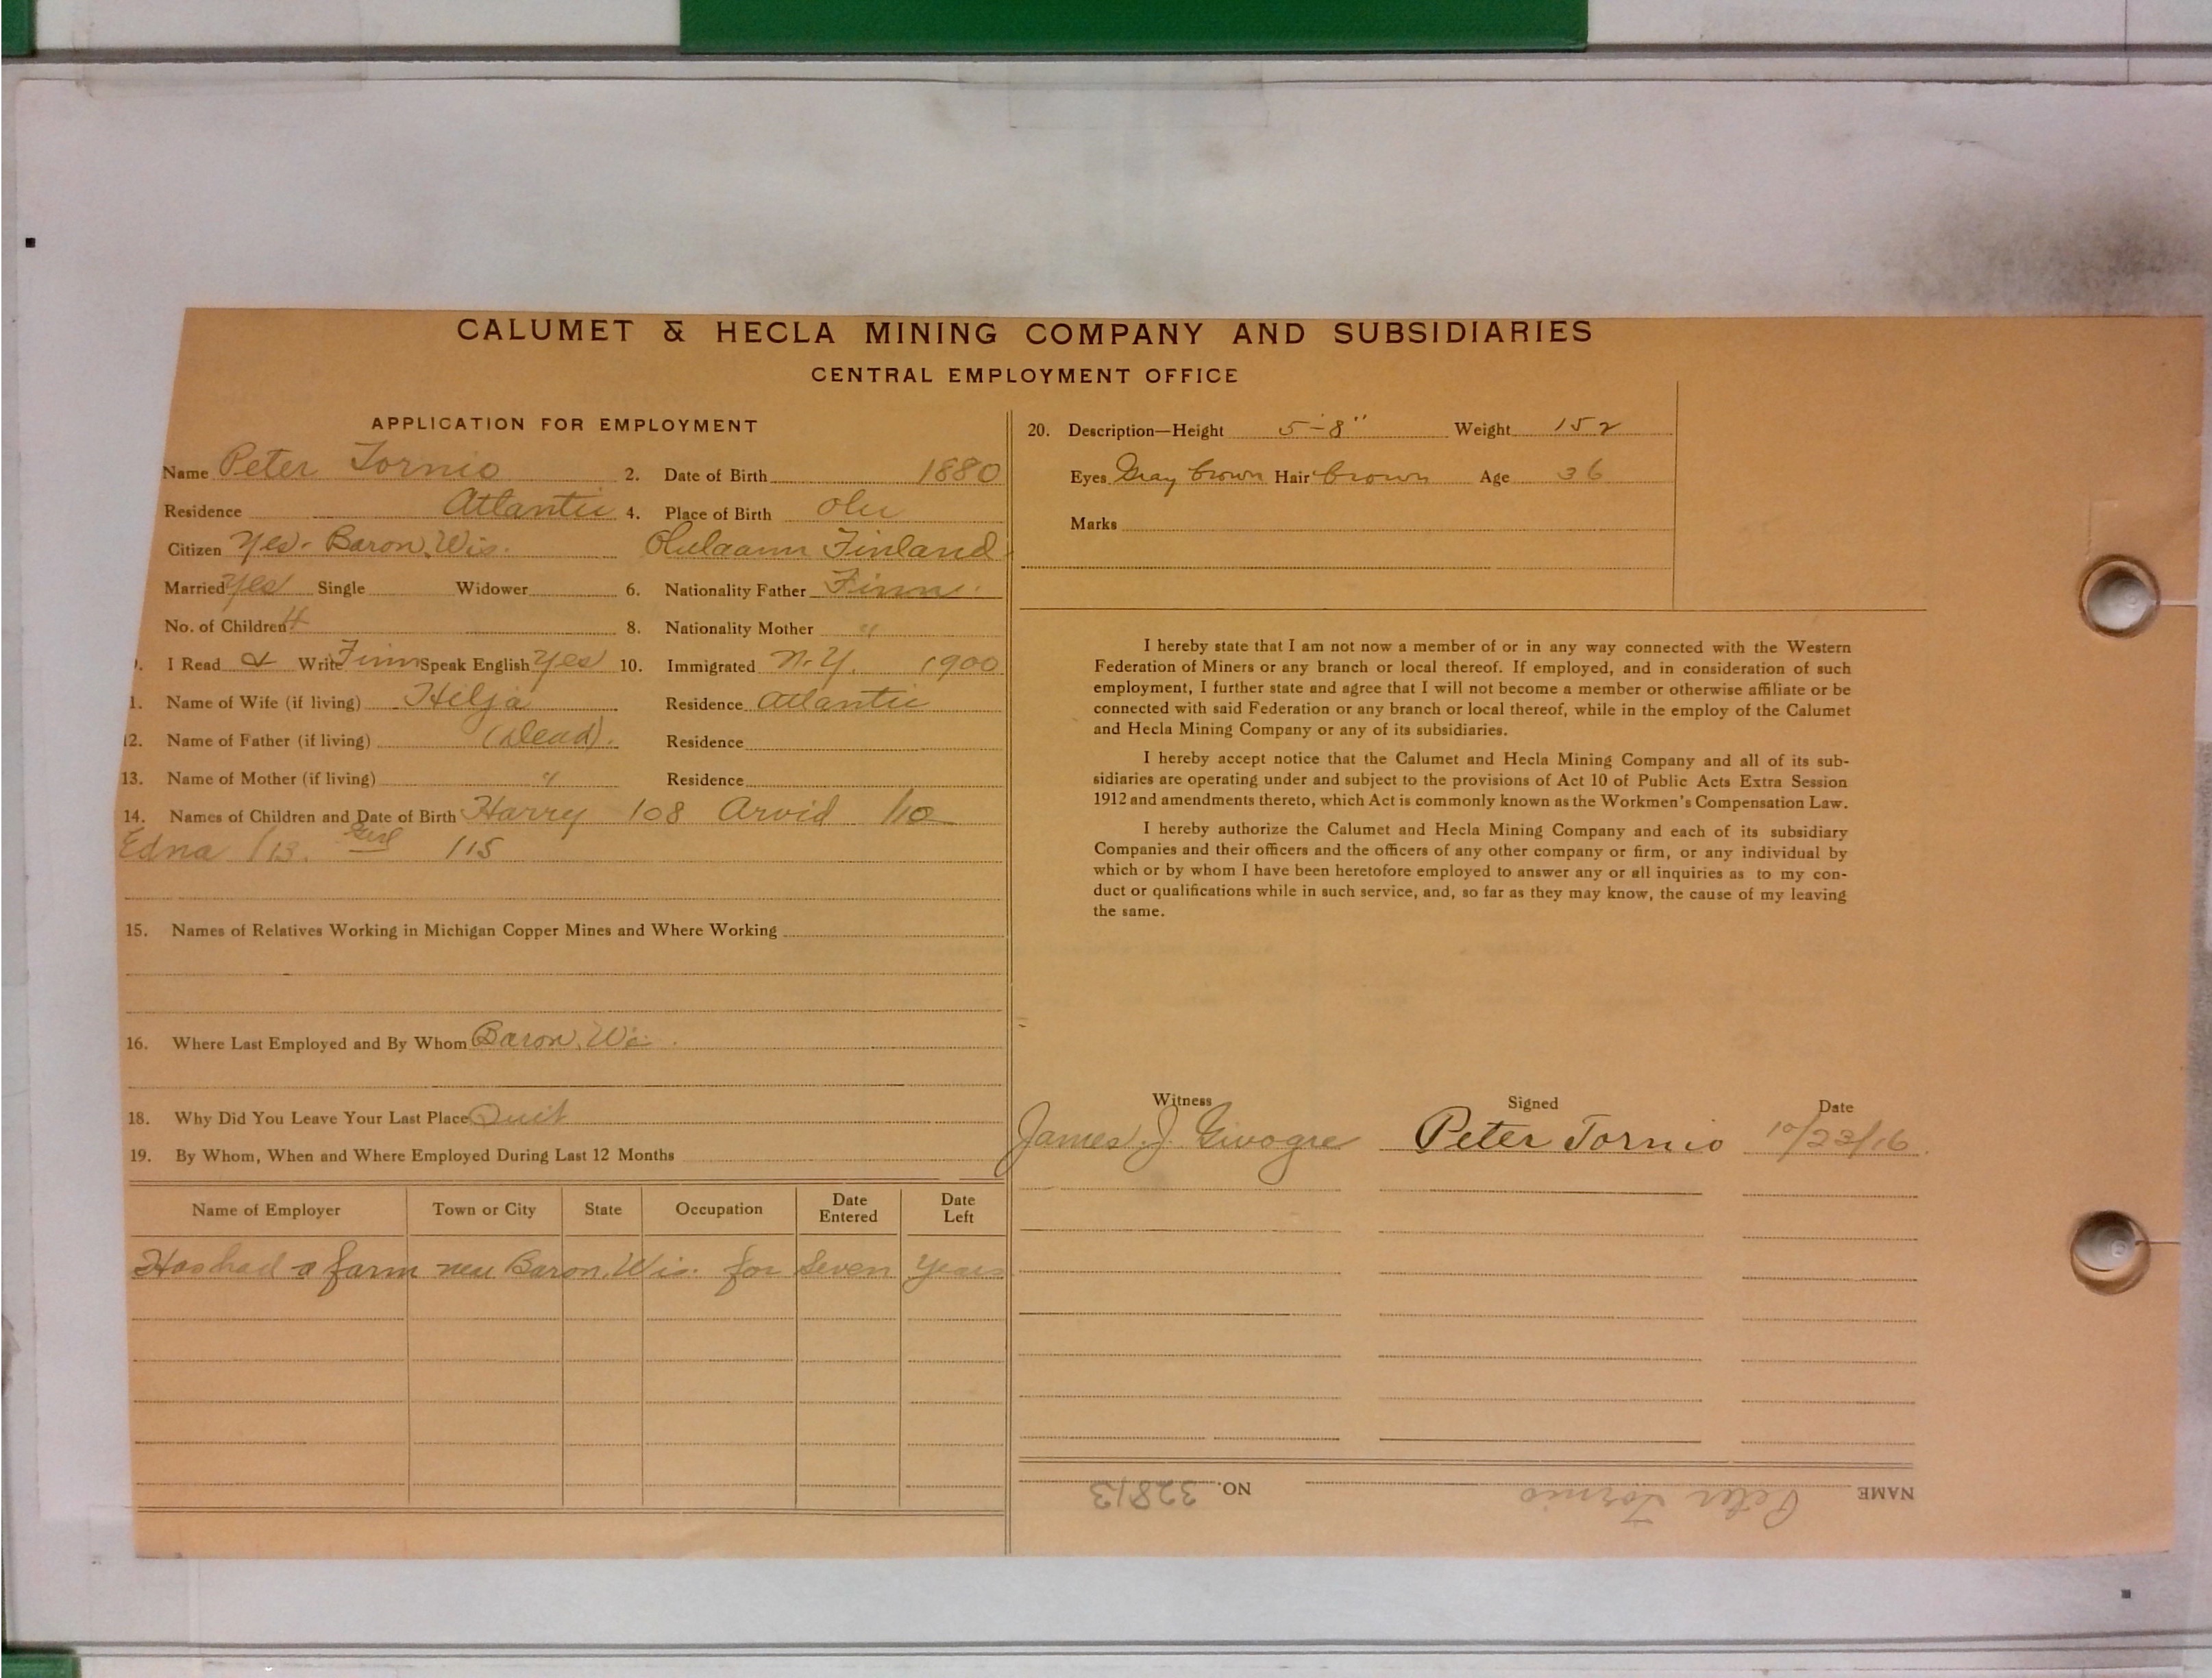 CALUMET & HECLA MINING COMPANY AND SUBSIDIARIES
CENTRAL EMPLOYMENT OFFICE
APPLICATION FOR EMPLOYMENT
Name Peter Tornio 2. Date of Birth 1880
Residence Atlantic 4. Place of Birth Olu
Citizen Yes. Baron, Wis. Olulaann Finland
Married Yes Single Widower 6. Nationality Father Finn.
No. of Children 4 8. Nationality Mother "
9. I Read & Write Finn Speak English Yes 10. Immigrated N.Y. 1900
1. Name of Wife (if living) Hilja Residence Atlantic
12. Name of Father (if living) (Dead). Residence
13. Name of Mother (if living) " Residence
14. Names of Children and Date of Birth Harry 108 Arvid 110
Edna 113. Girl 115
15. Names of Relatives Working in Michigan Copper Mines and Where Working
16. Where Last Employed and By Whom Baron, Wis.
18. Why Did You Leave Your Last Place Quit
19. By Whom, When and Where Employed During Last 12 Months
Name of Employer Town or City State Occupation Date Entered Date Left
Has had a farm near Baron, Wis. for Seven Years
20. Description—Height 5-8" Weight 152
Eyes Gray brown Hair brown Age 36
Marks
I hereby state that I am not now a member of or in any way connected with the Western
Federation of Miners or any branch or local thereof. If employed, and in consideration of such
employment, I further state and agree that I will not become a member or otherwise affiliate or be
connected with said Federation or any branch or local thereof, while in the employ of the Calumet
and Hecla Mining Company or any of its subsidiaries.
I hereby accept notice that the Calumet and Hecla Mining Company and all of its sub-
sidiaries are operating under and subject to the provisions of Act 10 of Public Acts Extra Session
1912 and amendments thereto, which Act is commonly known as the Workmen's Compensation Law.
I hereby authorize the Calumet and Hecla Mining Company and each of its subsidiary
Companies and their officers and the officers of any other company or firm, or any individual by
which or by whom I have been heretofore employed to answer any or all inquiries as to my con-
duct or qualifications while in such service, and, so far as they may know, the cause of my leaving
the same.
Witness Signed Date
James J. Peter Tornio 10/23/16
NAME Peter Tornio NO. 32813